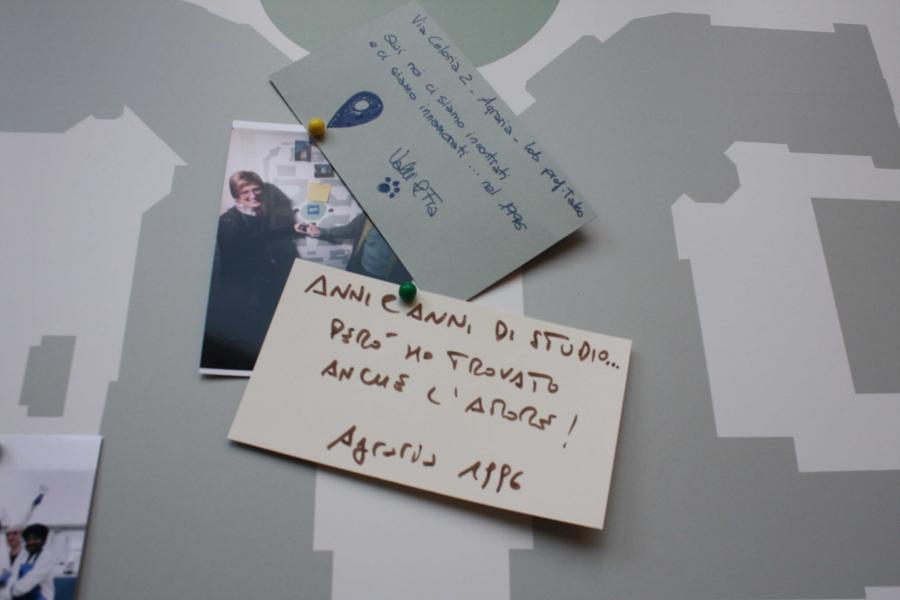 Via Celoria 2 - Agraria - lab prof. Tano
Qui noi ci siamo incontrati
e ci siamo innamorati ... nel 1996
ANNI E ANNI DI STUDIO...
PERÒ HO TROVATO
ANCHE L'AMORE!
Agraria 1996